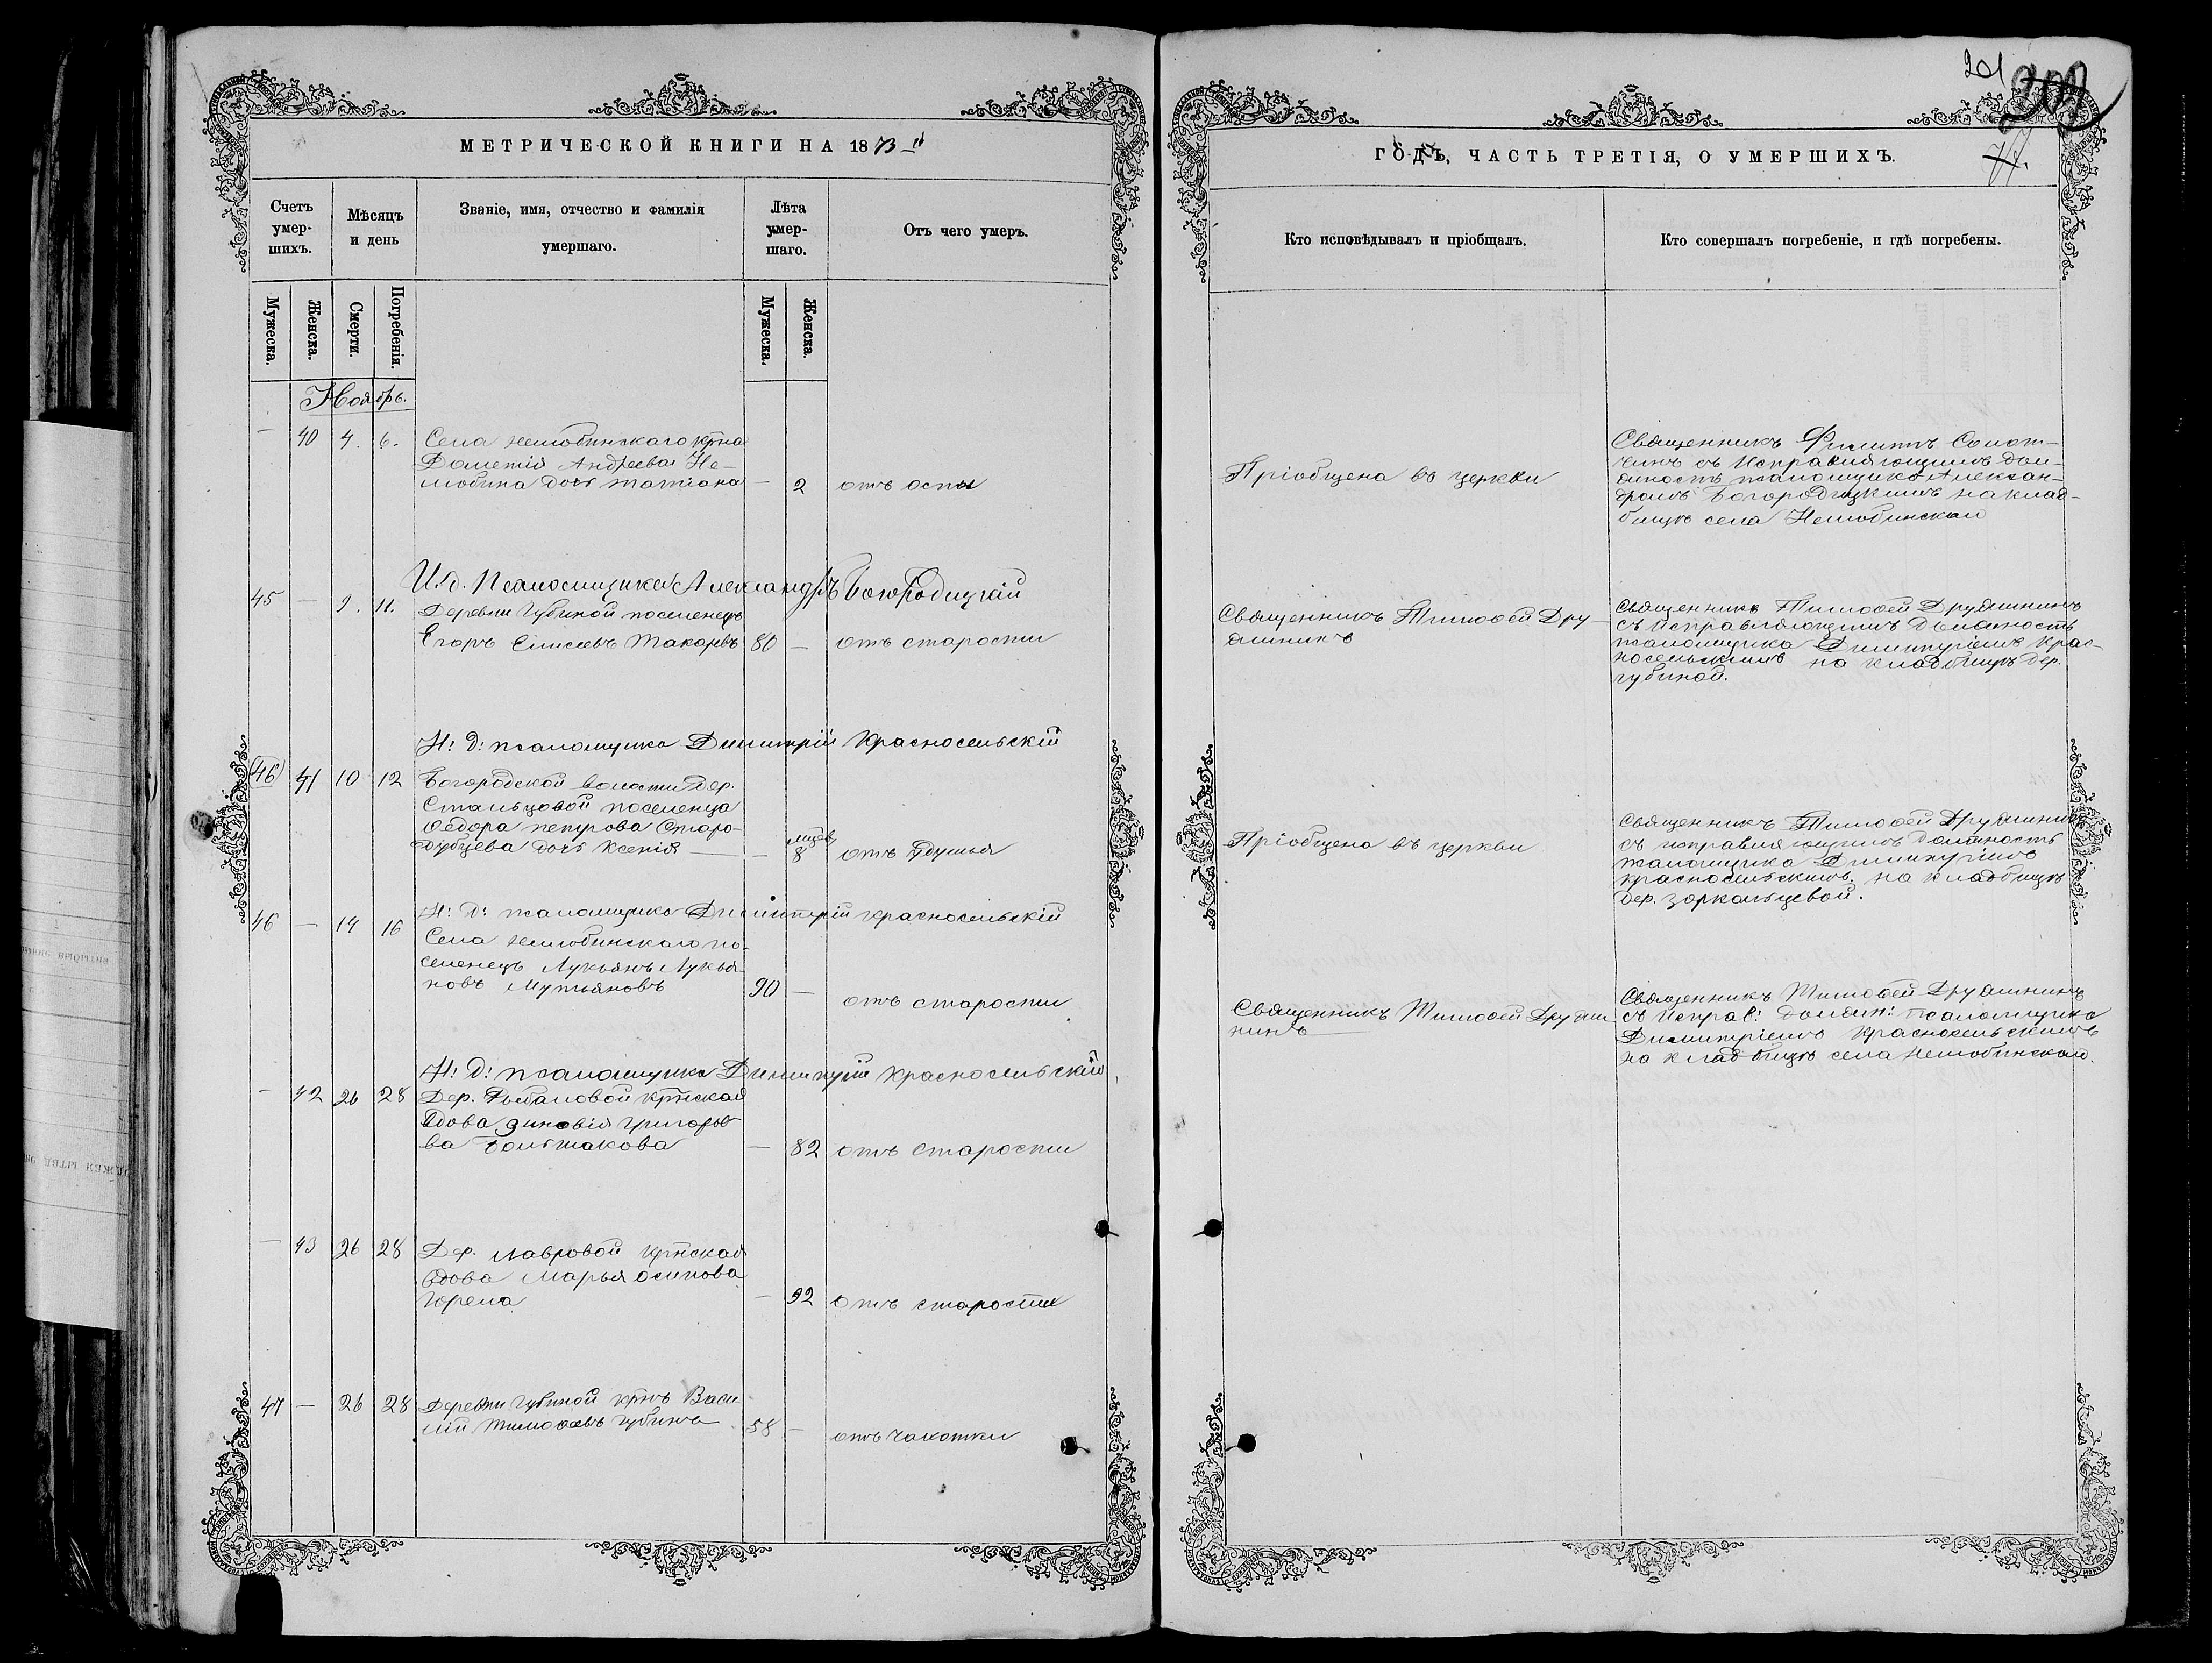 МЕТРИЧЕСКОЙ КНИГИ НА 1873-й
Счетъ умер-шихъ.
Мѣсяцъ и день
Званіе, имя, отчество и фамилія умершаго.
Лѣта умер-шаго.
Отъ чего умеръ.
Мужеска.
Женска.
Смерти.
Погребенія.
Мужеска.
Женска.
Ноябрь.
— 40 4. 6. Села Нелюбинскаго
Андреева Не-
любина дочь Татіана — 2 отъ оспы
И. д. Псаломщика Александръ Богородицкій
45 — 9. 11. Деревни Губиной поселенецъ
Егоръ Елисеевъ Макаровъ 80 — отъ старости
И: д: псаломщика Димитрій Красносельскій
(46) 41 10 12 Богородской волости дер.
поселенца
Ѳедора Петрова Старо-
дубцева дочь Ксенія — — 8 отъ удушья
И: д: псаломщика Димитрій Красносельскій
46 — 14 16 Села Нелюбинскаго по-
селенецъ Лукьянъ Лукья-
новъ 90 — отъ старости
И: д: псаломщика Димитрій Красносельскій
— 42 26 28 Дер.
вдова Зиновія Григорье-
ва Большакова — 82 отъ старости
— 43 26 28 Дер. Лавровой
вдова Марья Осипова
— 92 отъ старости
47 — 26 28 Деревни Губиной Васи
лій Тимоѳеевъ Губинъ 58 — отъ чахотки
201
77.
ГОДЪ, ЧАСТЬ ТРЕТІЯ, О УМЕРШИХЪ.
Кто исповѣдывалъ и пріобщалъ.
Кто совершалъ погребеніе, и гдѣ погребены.
Пріобщена въ церкви
Священникъ
съ исправляющимъ дол-
жность псаломщика Алексан-
дромъ Богородицкимъ на клад-
бищѣ села Нелюбинскаго
Священникъ Тимоѳей Дру
жининъ
Священникъ Тимоѳей Дружининъ
съ исправляющимъ должность
псаломщика Димитріемъ Крас-
носельскимъ на кладбищѣ дер.
Губиной.
Пріобщена въ церкви
Священникъ Тимоѳей Дружининъ
съ исправляющимъ должность
псаломщика Димитріемъ
Красносельскимъ на кладбищѣ
дер. Зоркальцевой.
Священникъ Тимоѳей Друж
нинъ
Священникъ Тимоѳей Дружининъ
съ исправ: должн: псаломщика
Димитріемъ Красносельскимъ
на кладбищѣ села Нелюбинскаго.